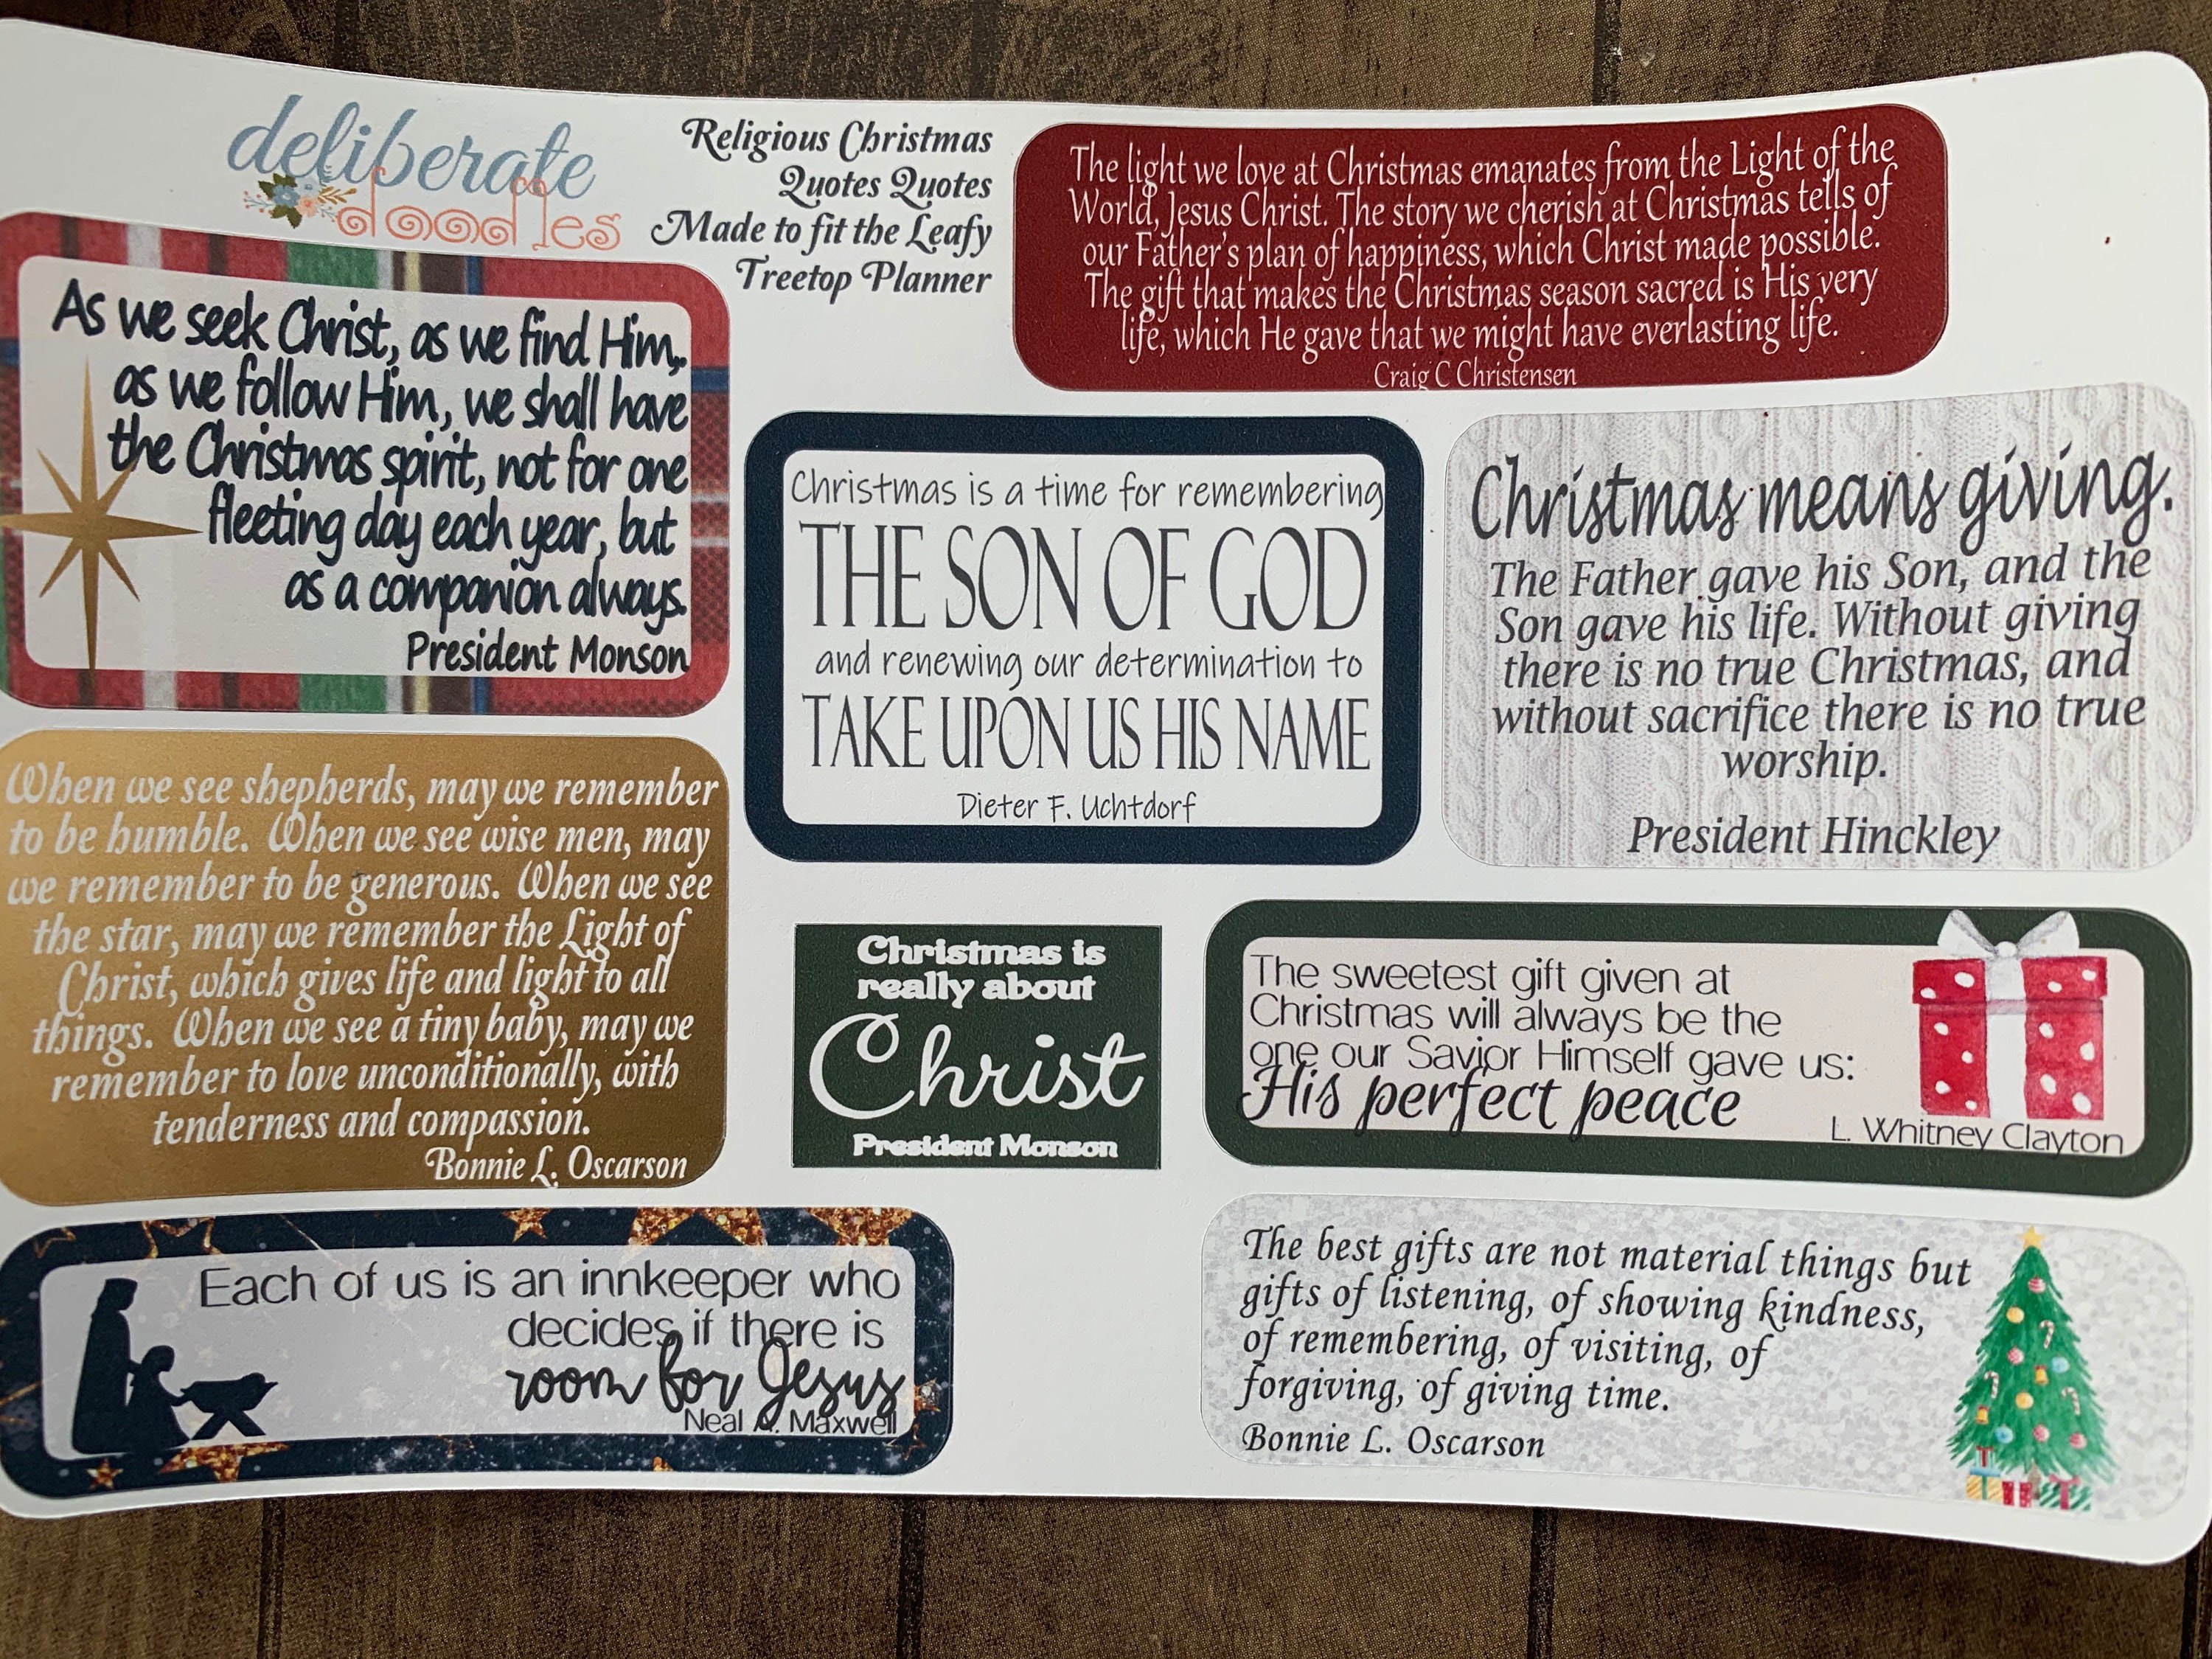 deliberate
doodles
Religious Christmas
Quotes Quotes
Made to fit the Leafy
Treetop Planner
The light we love at Christmas emanates from the Light of the
World, Jesus Christ. The story we cherish at Christmas tells of
our Father's plan of happiness, which Christ made possible.
The gift that makes the Christmas season sacred is His very
life, which He gave that we might have everlasting life.
Craig C Christensen
As we seek Christ, as we find Him,
as we follow Him, we shall have
the Christmas spirit, not for one
fleeting day each year, but
as a companion always.
President Monson
Christmas is a time for remembering
THE SON OF GOD
and renewing our determination to
TAKE UPON US HIS NAME
Dieter F. Uchtdorf
Christmas means giving.
The Father gave his Son, and the
Son gave his life. Without giving
there is no true Christmas, and
without sacrifice there is no true
worship.
President Hinckley
When we see shepherds, may we remember
to be humble. When we see wise men, may
we remember to be generous. When we see
the star, may we remember the Light of
Christ, which gives life and light to all
things. When we see a tiny baby, may we
remember to love unconditionally, with
tenderness and compassion.
Bonnie L. Oscarson
Christmas is
really about
Christ
President Monson
The sweetest gift given at
Christmas will always be the
one our Savior Himself gave us:
His perfect peace
L. Whitney Clayton
Each of us is an innkeeper who
decides if there is
room for Jesus
Neal A. Maxwell
The best gifts are not material things but
gifts of listening, of showing kindness,
of remembering, of visiting, of
forgiving, of giving time.
Bonnie L. Oscarson